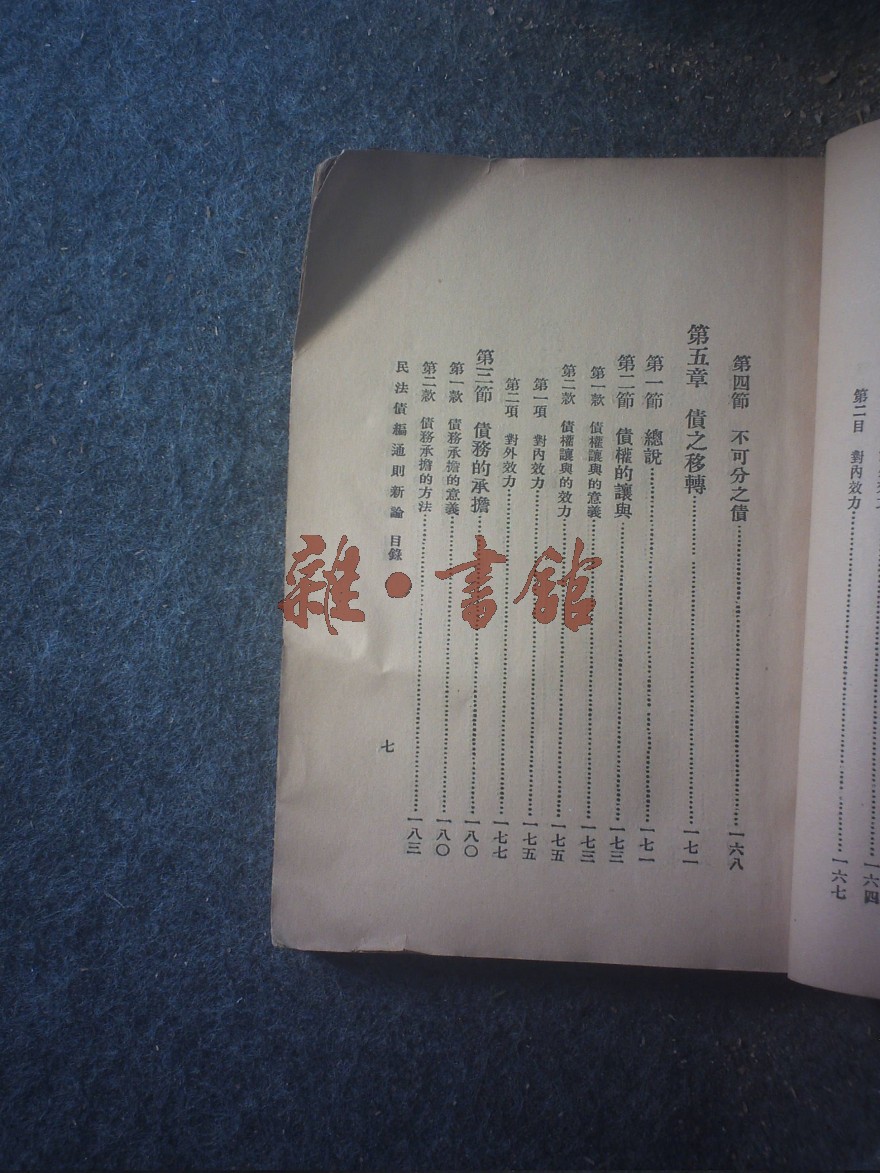 第二目 對內效力……一六七
第四節 不可分之債……一六八
第五章 債之移轉……一七一
第一節 總說……一七一
第二節 債權的讓與……一七三
第一款 債權讓與的意義……一七三
第二款 債權讓與的效力……一七五
第一項 對內效力……一七五
第二項 對外效力……一七七
第三節 債務的承擔……一八〇
第一款 債務承擔的意義……一八〇
第二款 債務承擔的方法……一八三
民法債編通則新論 目錄
七
雜·書館